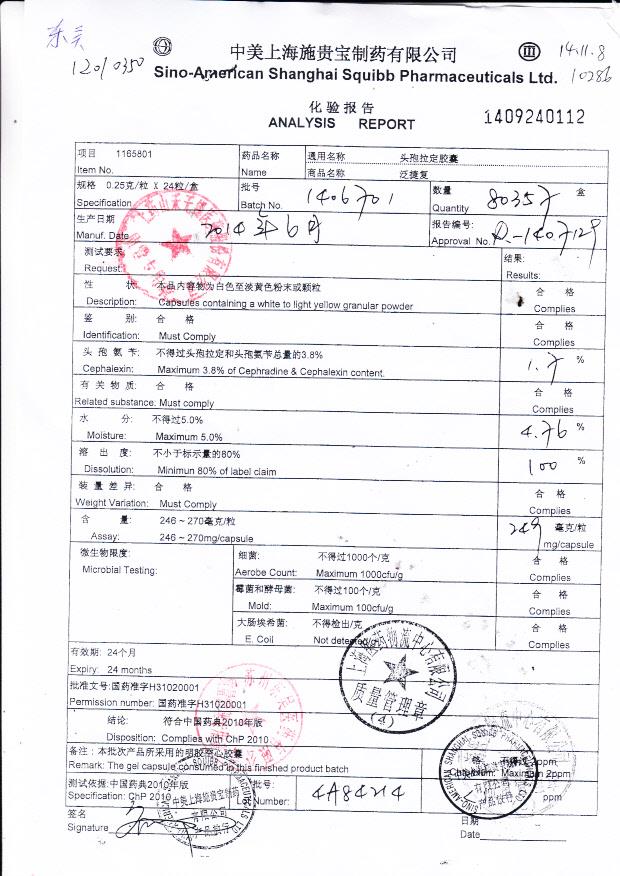 东美
12010350
14.11.8
10286
中美上海施贵宝制药有限公司
Sino-American Shanghai Squibb Pharmaceuticals Ltd.
化验报告
ANALYSIS REPORT
1409240112
项目 1165801
Item No.
药品名称 通用名称 头孢拉定胶囊
Name 商品名称 泛捷复
规格 0.25克/粒 X 24粒/盒
Specification
批号
Batch No. 1406701
数量 盒
Quantity 80357
生产日期
Manuf. Date 2014年6月
报告编号:
Approval No.
测试要求
Request:
结果:
Results:
性 状: 本品内容物为白色至淡黄色粉末或颗粒 合 格
Description: Capsules containing a white to light yellow granular powder Complies
鉴 别: 合 格 合 格
Identification: Must Comply Complies
头孢氨苄: 不得过头孢拉定和头孢氨苄总量的3.8% 1.7 %
Cephalexin: Maximum 3.8% of Cephradine & Cephalexin content.
有关物质: 合 格 合 格
Related substance: Must comply Complies
水 分: 不得过5.0% 4.76 %
Moisture: Maximum 5.0%
溶出度: 不小于标示量的80% 100 %
Dissolution: Minimun 80% of label claim
装量差异: 合 格 合 格
Weight Variation: Must Comply Complies
含 量: 246 ~ 270毫克/粒 249 毫克/粒
Assay: 246 ~ 270mg/capsule mg/capsule
微生物限度: 细菌: 不得过1000个/克 合 格
Microbial Testing: Aerobe Count: Maximum 1000cfu/g Complies
霉菌和酵母菌: 不得过100个/克 合 格
Mold: Maximum 100cfu/g Complies
大肠埃希菌: 不得检出/克 合 格
E. Coli Not detected/g Complies
有效期: 24个月
Expiry: 24 months
上海医药物流中心有限公司
质量管理章
(4)
批准文号:国药准字H31020001
Permission number: 国药准字H31020001
结论: 符合中国药典2010年版
Disposition: Complies with ChP 2010
备注:本批次产品所采用的明胶空心胶囊 不得过 ppm
Remark: The gel capsule consumed in this finished product batch Maximum 2ppm
测试依据:中国药典2010年版 批号:
Specification: ChP 2010 Lot Number: 4A84214 ppm
中美上海施贵宝制药
有限公司
签名 日期
Signature Date